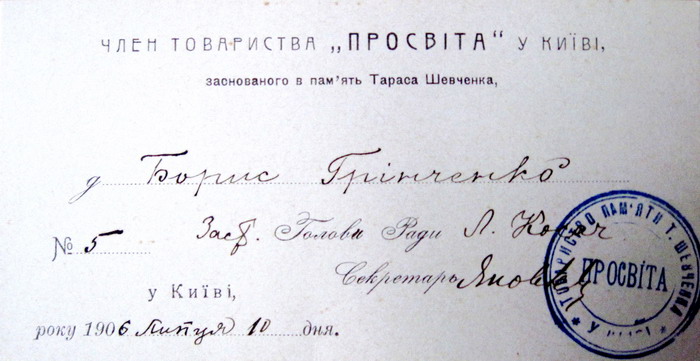 ЧЛЕН ТОВАРИСТВА „ПРОСВІТА“ У КИЇВІ,
заснованого в пам'ять Тараса Шевченка,
д Борис Грінченко
№ 5 Заст. Голови Ради Л. Косач
Секретарь
у Київі,
року 1906 Липця 10 дня.
ТОВАРИСТВО ПАМ'ЯТИ Т. ШЕВЧЕНКА
ПРОСВІТА
У КИЇВІ